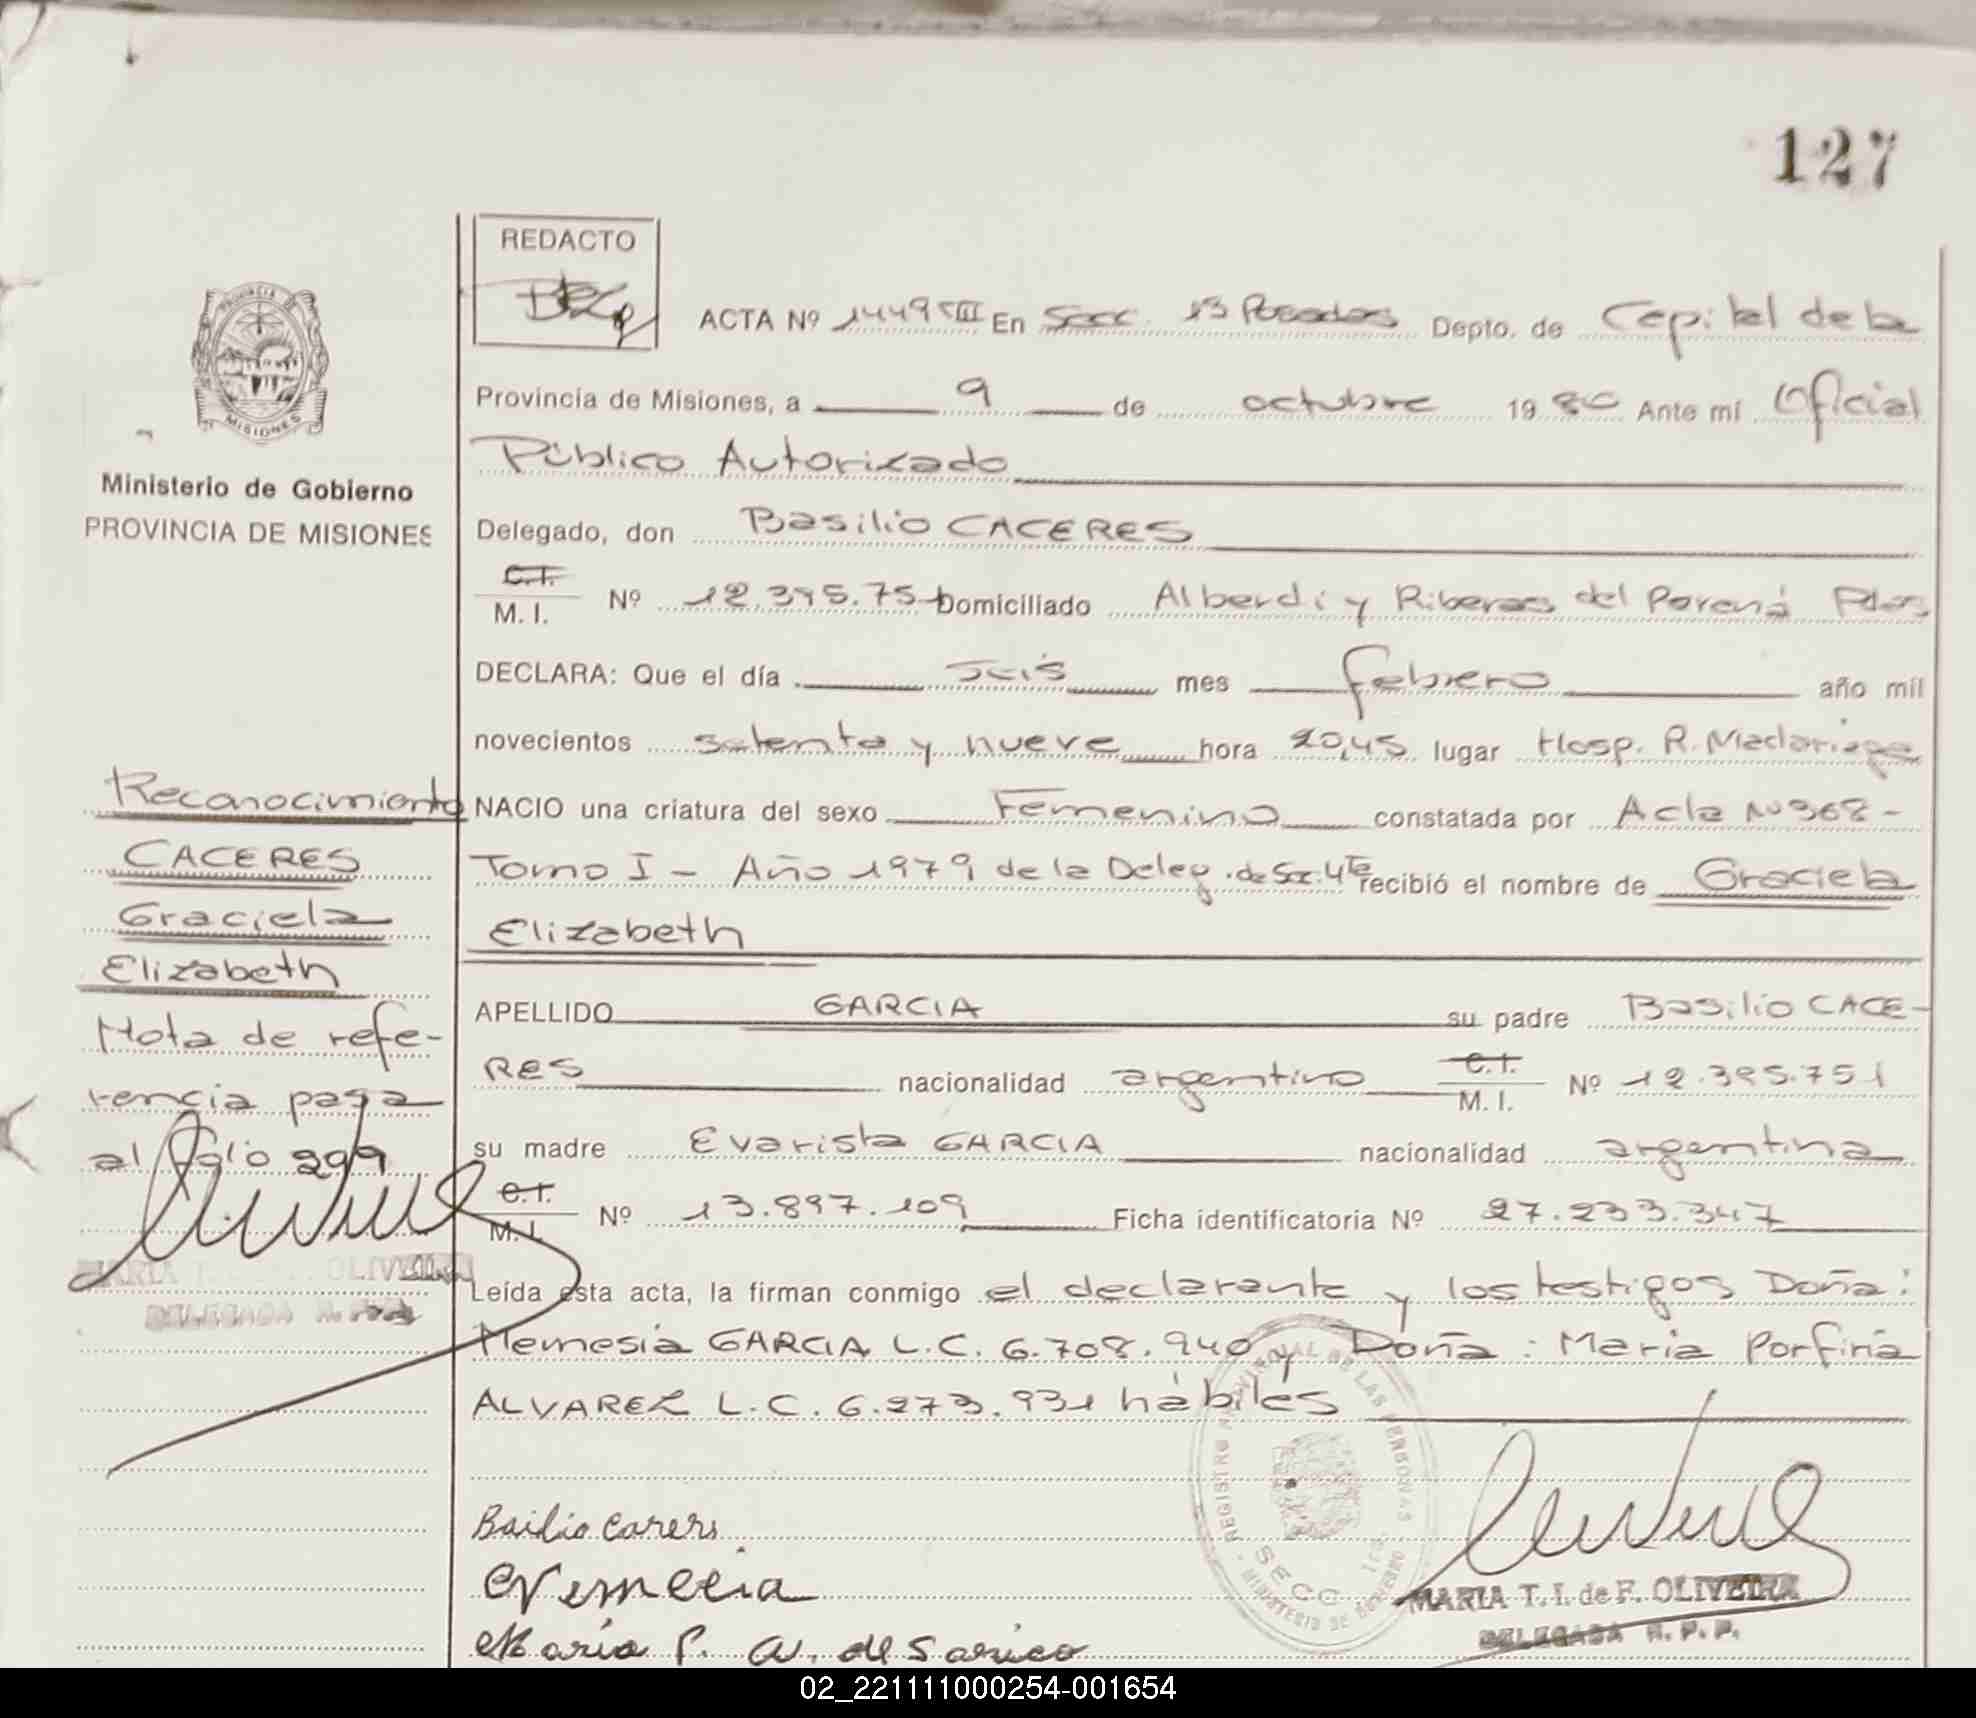 127
REDACTO
ACTA Nº 1449 VIII En Secc. 1ª Posadas Depto. de Capital de la
Provincia de Misiones, a 9 de octubre 1980 Ante mí Oficial
Público Autorizado
Delegado, don Basilio CACERES
C.I. M. I. Nº 12.395.751 Domiciliado Alberdi y Riberas del Paraná Pdas
DECLARA: Que el día seis mes febrero año mil
novecientos setenta y nueve hora 20,45 lugar Hosp. R. Madariaga
NACIO una criatura del sexo Femenino constatada por Acta Nº 368-
Tomo I - Año 1979 de la Deleg. de Sec. 4ta recibió el nombre de Graciela
Elizabeth
APELLIDO GARCIA su padre Basilio CACE-
RES nacionalidad argentino C.I. M. I. Nº 12.395.751
su madre Evarista GARCIA nacionalidad argentina
C.I. M. I. Nº 13.897.109 Ficha identificatoria Nº 27.233.347
Leída esta acta, la firman conmigo el declarante y los testigos Doña:
Nemesia GARCIA L.C. 6.708.940 y Doña: Maria Porfiria
ALVAREZ L.C. 6.273.931 hábiles
PROVINCIA DE
MISIONES
Ministerio de Gobierno
PROVINCIA DE MISIONES
Reconocimiento
CACERES
Graciela
Elizabeth
Nota de refe-
rencia pasa
al folio 299
MARIA T. OLIVEIRA
DELEGADA R. P. P.
REGISTRO PROVINCIAL DE LAS PERSONAS
SECC. 1ra.
MINISTERIO DE GOBIERNO
Basilio Caceres
Nemecia
María P. A. de Sarico
MARIA T. I. de F. OLIVEIRA
DELEGADA R. P. P.
02_221111000254-001654